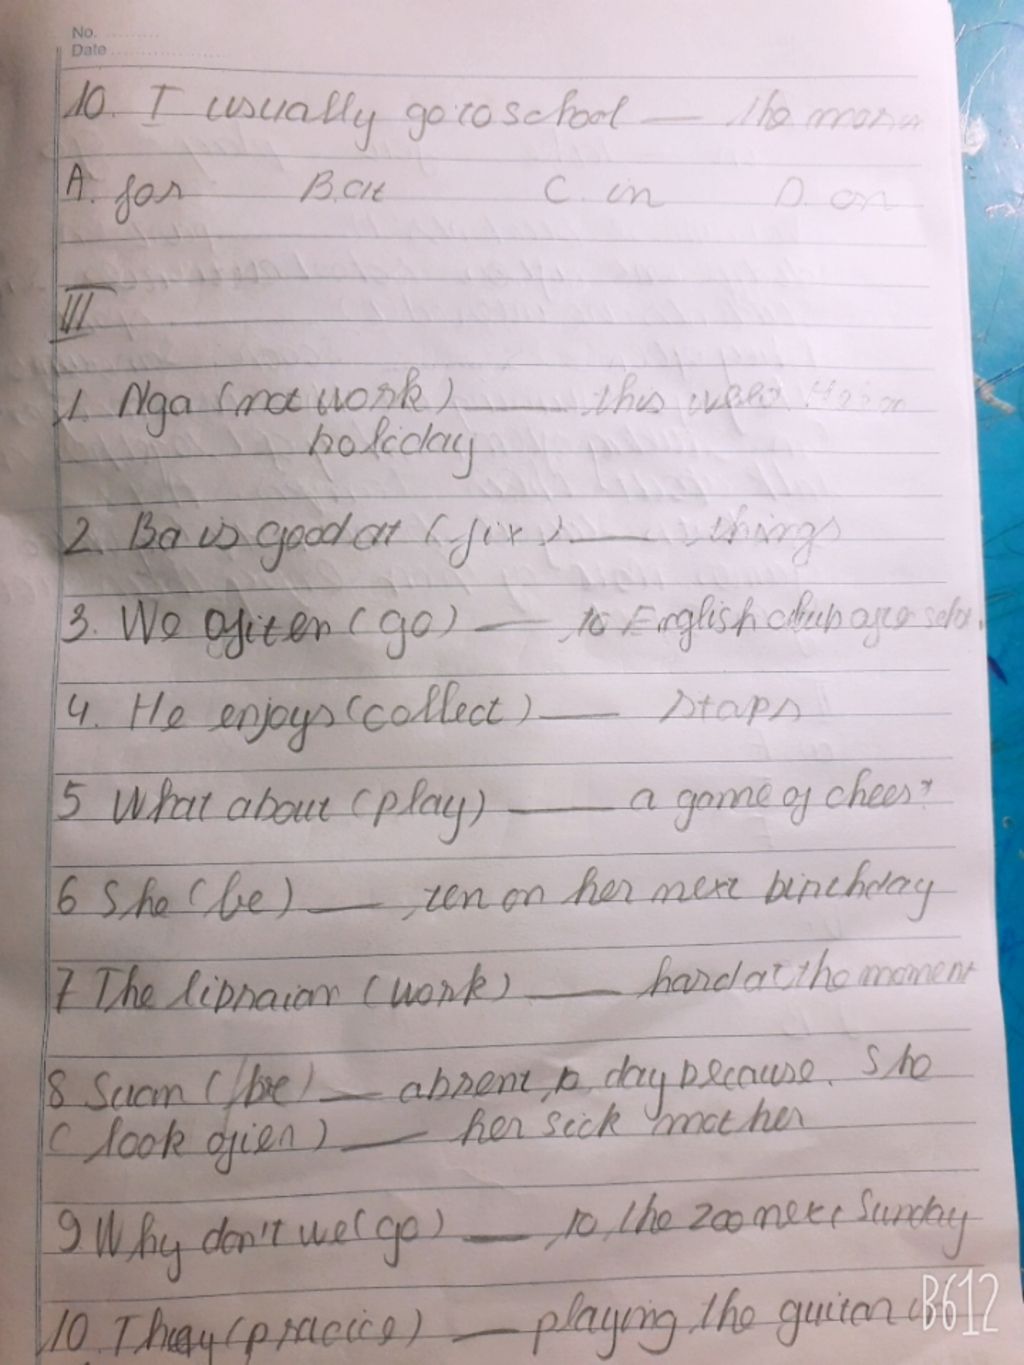 No.
Date
10. I usually go to school — the
A. for B. at C. in D. on
III
1. Nga (not work) —— this week
holiday
2. Ba is good at (fix) —— things
3. We often (go) —— to English club
4. He enjoys (collect) —— staps
5 What about (play) —— a game of chees?
6 She (be) —— ten on her next birthday
7 The lipraian (work) —— hard at the moment
8 Suan (be) —— absent to day because. She
(look after) —— her sick mother
9 Why don't we (go) —— to the zoo next Sunday
10. They (practice) —— playing the guitar
B612